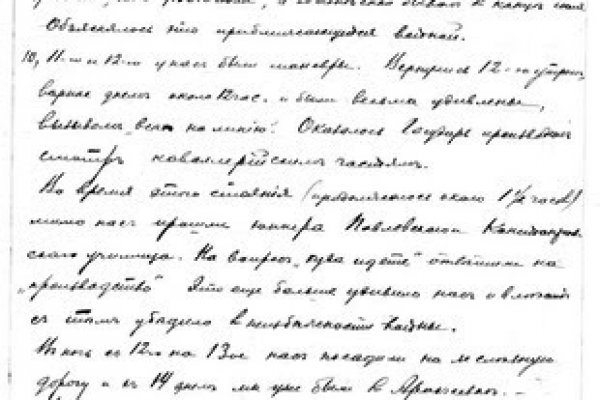 Объяснялось это приближающейся войной.
10, 11-го и 12-го у нас были маневры. Вернулись 12-го утром,
вернее днем около 12 час. и были весьма удивлены,
вызовом "всех на линию". Оказалось Государь производил
смотр кавалерийским частям.
Во время этого стояния (продолжалось около 1 1/2 часов)
мимо нас прошли юнкера Павловского
училища. На вопрос "куда идете" ответили на
"производство" Это еще больше удивило нас и
с тем убедило в неизбежности войны.
В ночь с 12го на 13ое нас посадили на железную
дорогу и 14 днем мы уже были в